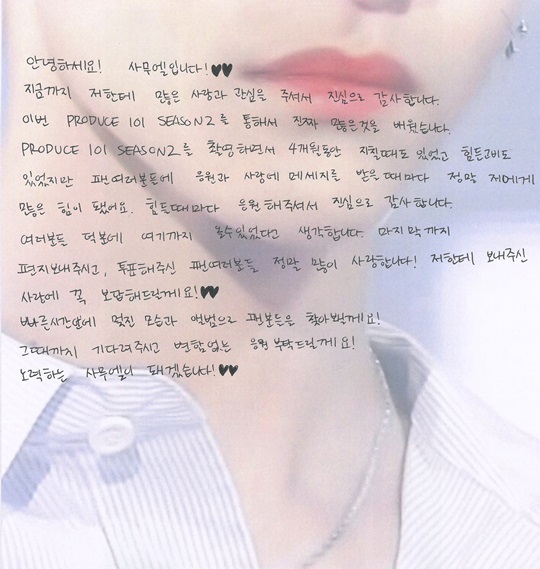 안녕하세요! 사무엘입니다!♥♥
지금까지 저한테 많은 사랑과 관심을 주셔서 진심으로 감사합니다.
이번 PRODUCE 101 SEASON2를 통해서 진짜 많은것을 배웠습니다.
PRODUCE 101 SEASON2를 촬영하면서 4개월동안 지칠때도 있었고 힘든고비도
있었지만 팬여러분들에 응원과 사랑에 메세지를 받을때마다 정말 제에게
많은 힘이 됐어요. 힘든때마다 응원해주셔서 진심으로 감사합니다.
여러분들 덕분에 여기까지 올수있었다고 생각합니다. 마지막까지
편지보내주시고, 투표해주신 팬여러분들 정말 많이 사랑합니다! 저한테 보내주신
사랑에 꼭 보답해드릴께요!♥♥
빠른시간안에 멋진 모습과 앨범으로 팬분들은 찾아뵐께요!
그때까지 기다려주시고 변함없는 응원 부탁드릴께요!
노력하는 사무엘이 돼겠습니다!♥♥